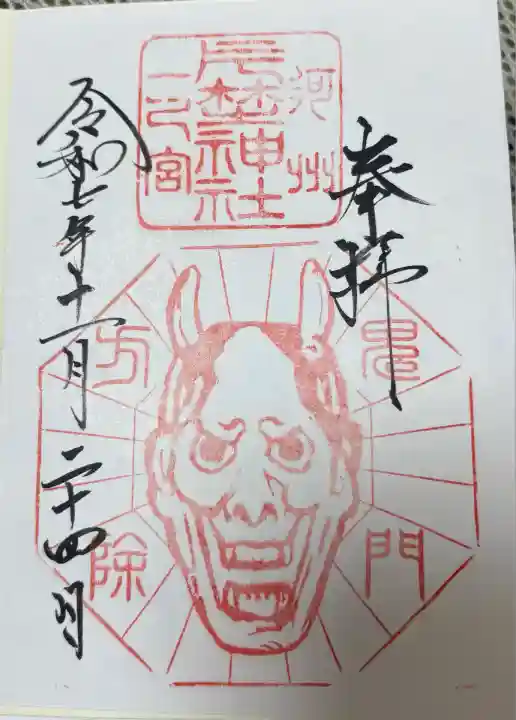 奉拝
河州
片埜神社
一乃宮
鬼門
方除
令和七年十一月二十四日